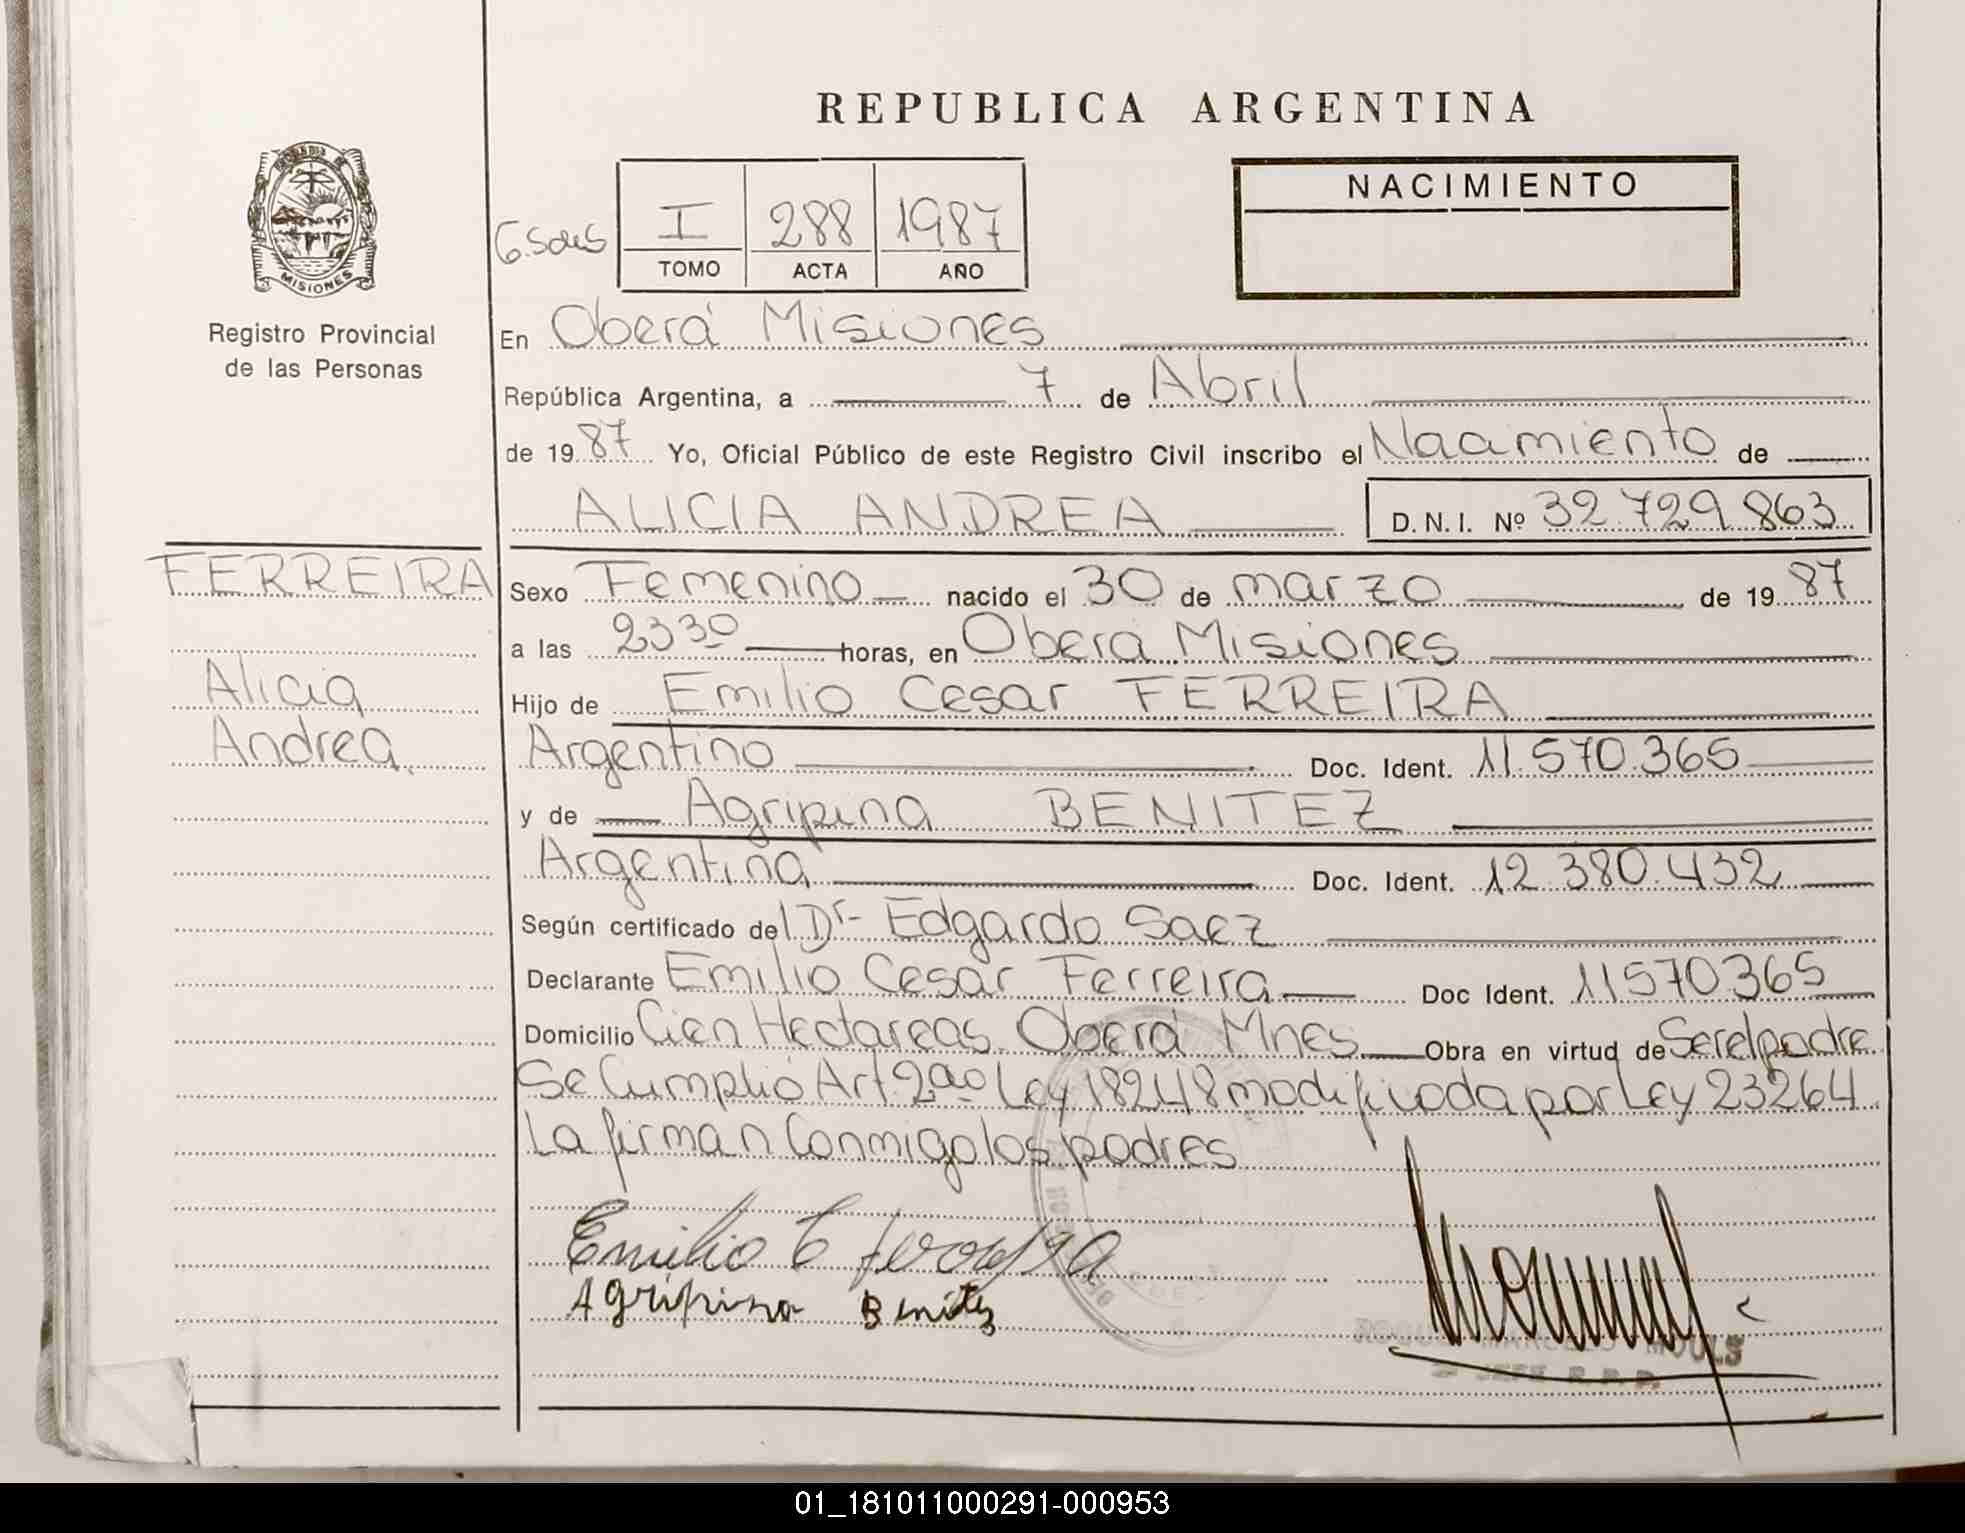 REPUBLICA ARGENTINA
NACIMIENTO
I 288 1987
TOMO ACTA AÑO
MISIONES
Registro Provincial
de las Personas
En Oberá Misiones
República Argentina, a 7 de Abril
de 1987 Yo, Oficial Público de este Registro Civil inscribo el Nacimiento de
ALICIA ANDREA D.N.I. Nº 32.729.863
FERREIRA
Alicia
Andrea
Sexo Femenino nacido el 30 de marzo de 1987
a las 23 30 horas, en Oberá Misiones
Hijo de Emilio Cesar FERREIRA
Argentino Doc. Ident. 11.570.365
y de Agripina BENITEZ
Argentina Doc. Ident. 12.380.432
Según certificado del Dr. Edgardo Saez
Declarante Emilio Cesar Ferreira Doc Ident. 11570365
Domicilio Cien Hectareas Oberá Mnes Obra en virtud de Ser el padre
Se Cumplió Art. Ley 18248 modificada por Ley 23264
La firman Conmigo los padres
Emilio C
Agripina Benitez
JEFE R.P.P.
01_181011000291-000953